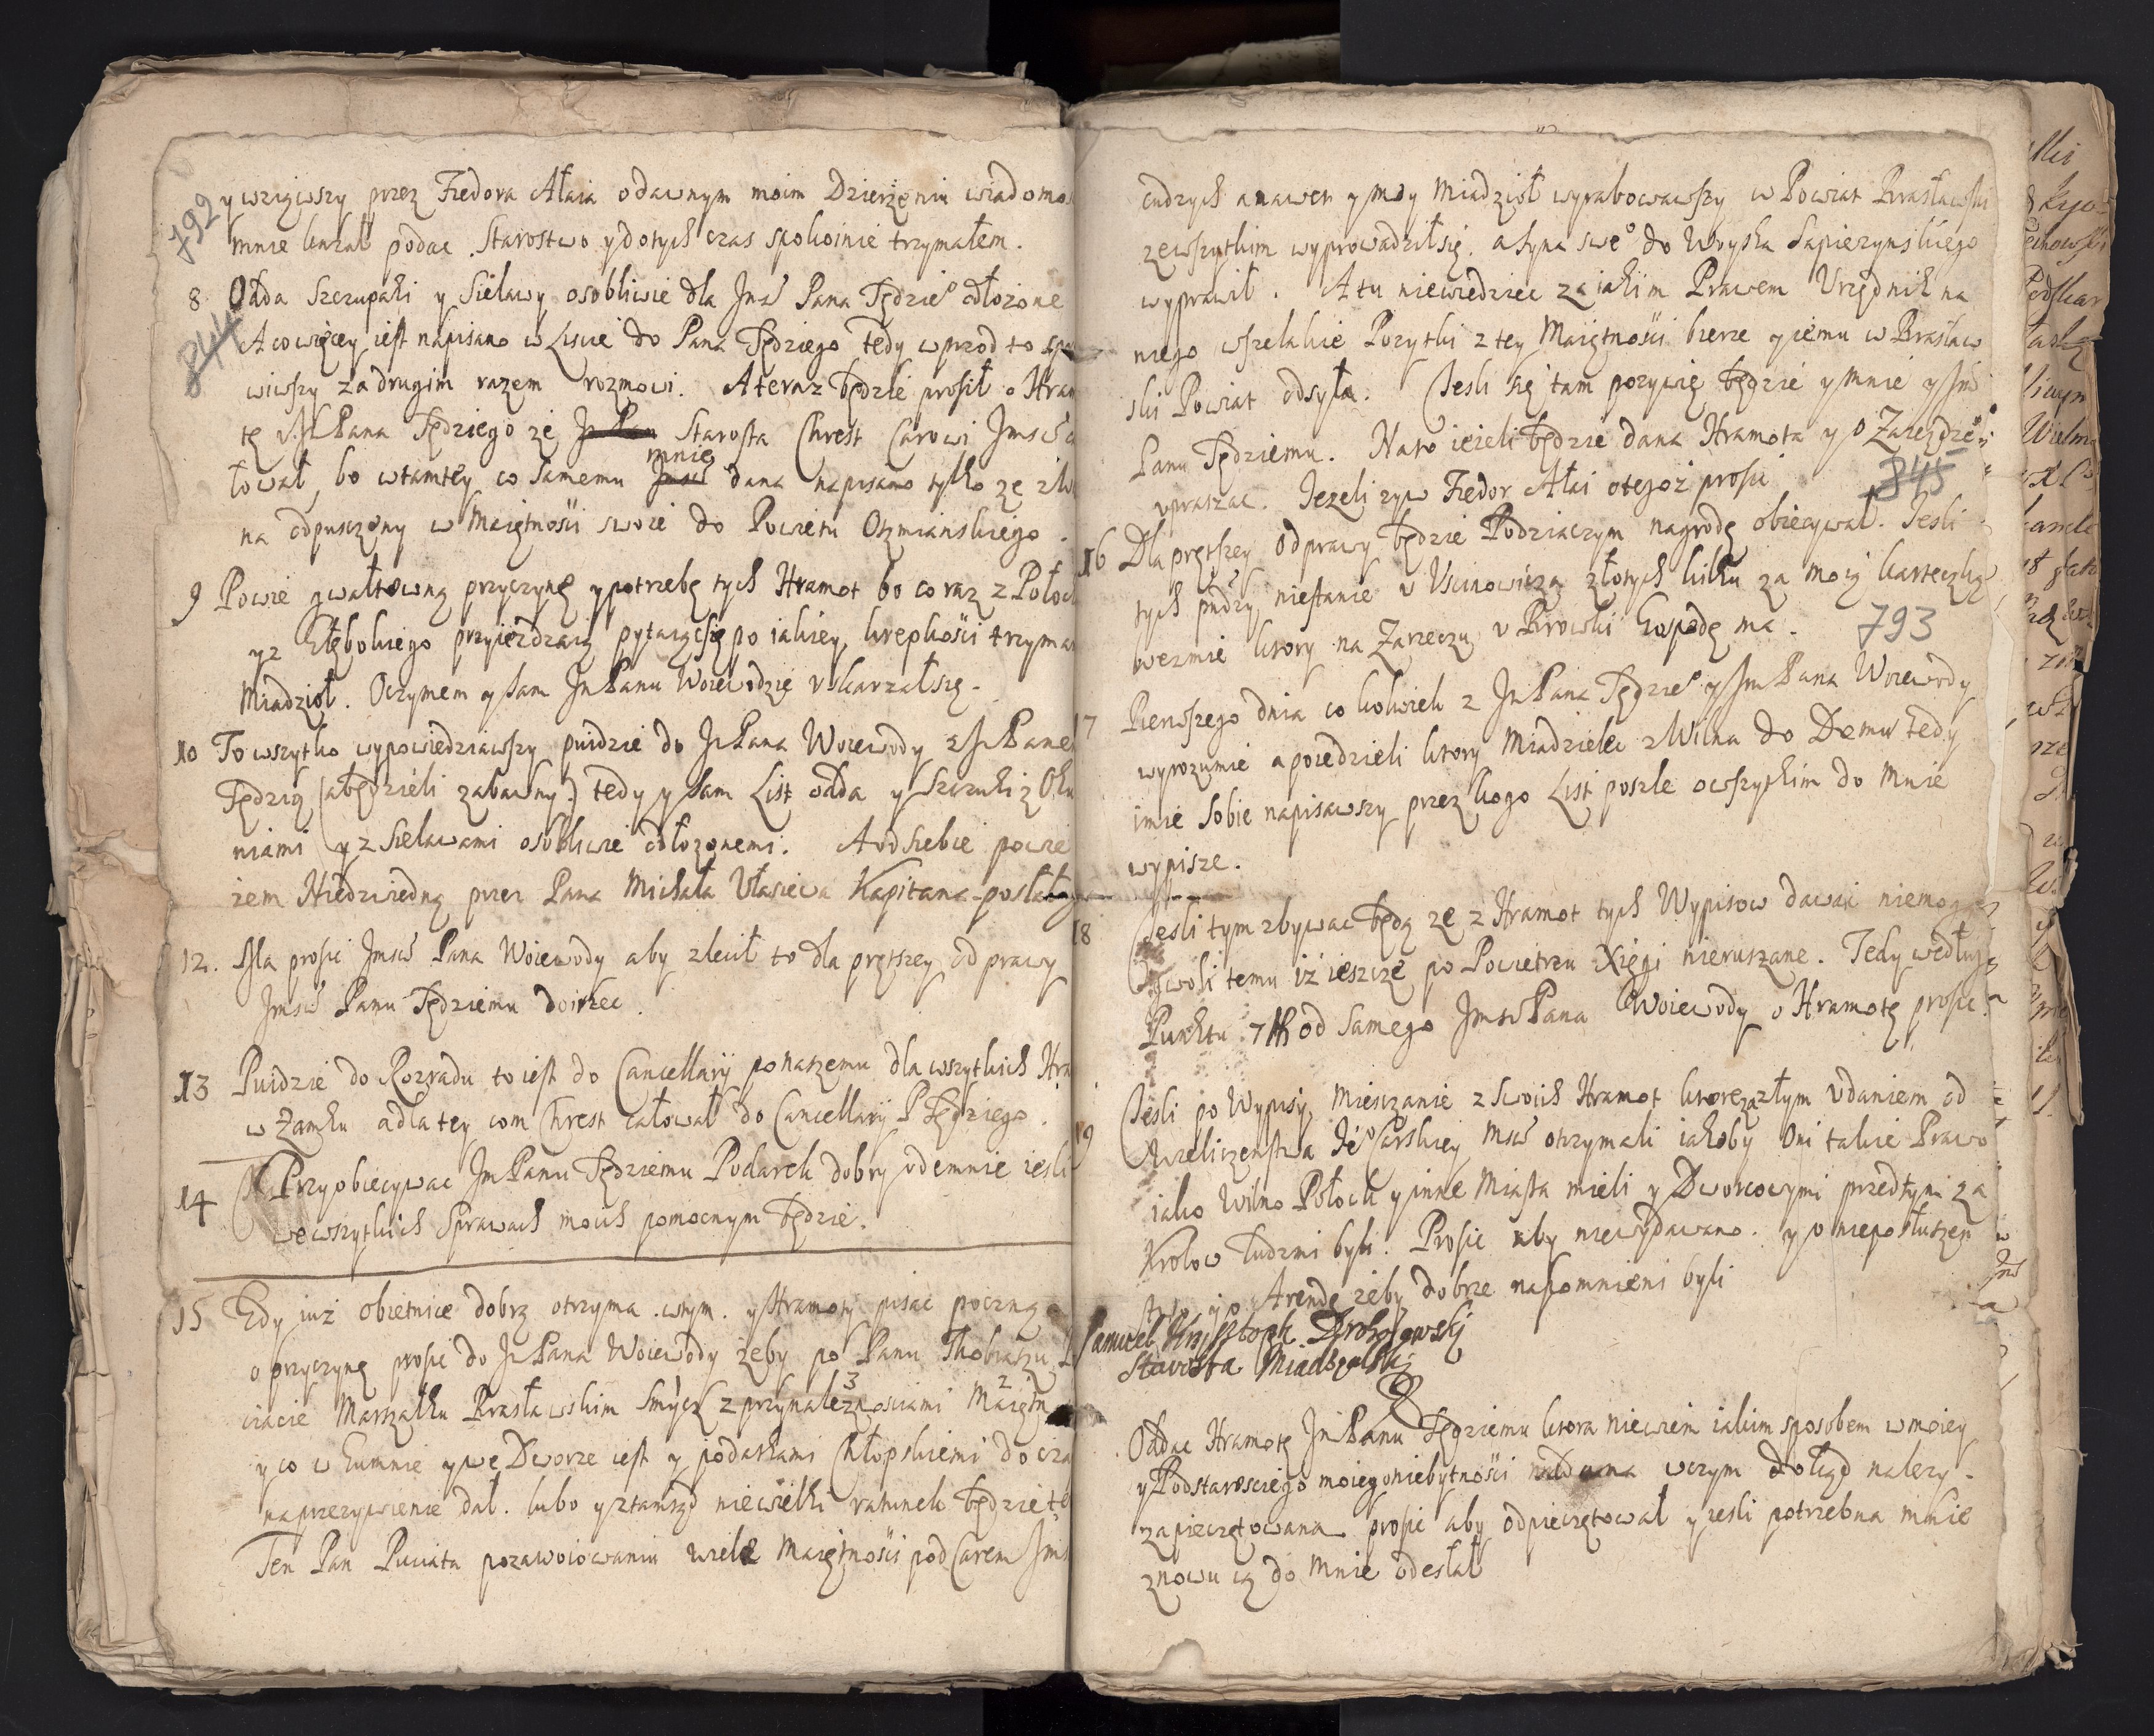 792
y wziąwszy przez Fiedora Ałaia o dawnym moim Dzierżeniu wiadomos
mnie kazał podac Starostwo y do tych czas spokoinie trzymałem.
8 Odda Szczupaki y Sielawy osobliwie dla Jmś Pana Sędzieo odłożone
844
A co więcey iest napisano w Liscie do Pana Sędziego tedy wprzod to
wiwszy za drugim razem rozmowi. A teraz będzie prosił o Hram
tę u Jm Pana Sędziego że Starosta Chrest Carowi Jmści
łował, bo w tamtey co samemu mnie dana napisano tylko że z
na odpusczony w Maiętności swoie do Powietu Oszmianskiego.
9 Powie gwałtowną przyczynę y potrzebę tych Hramot bo co raz z Połoc
y z Głębokiego przyieżdzaią pytaiąc się po iakiey krepkości trzyma
Miadzioł. O czymem y sam Jm Panu Woiewodzie uskarzał się.
10 To wszytko wypowiedziawszy puidzie do Jm Pana Woiewody z Jm Panem
Sędzią (a będzieli zabawny) tedy y sam List odda y Szczuki z Oku
niami y z Sielawami osobliwie odłożonemi. A od siebie powie
żem Niedzwiedną przez Pana Michała Ułasiewa Kapitana posłał
12. Ma prosic Jmsci Pana Woiewody aby zlecił to dla prętszey odprawy
Jmsci Panu Sędziemu doirzec.
13 Puidzie do Rozradu to iest do Cancellaryi po naszemu dla wszytkich Hra
w Zamku a dla tey com Chrest całował do Cancellaryi P Sędziego.
14 Przyobiecywac Jm Panu Sędziemu Podarek dobry odemnie iesli
we wszytkich Sprawach moich pomocnym będzie.
15 Gdy iuż obietnice dobrą otrzyma w tym y Hramoty pisac poczną
o przyczynę prosic do Jm Pana Woiewody żeby po Panu Thobiaszu
ciacie Marszałku Brasławskim Smycz z przynależnosciami 3 Maiętn 2
y co w Gumnie y we Dworze iest y podatkami Chłopskiemi do cza
na przezywienie dał. lubo y ztamtąd niewielki ratunek będzie
Ten Pan Puciata po zawoiowaniu wiele Maiętności pod Carem Jms
cudzych a nawet y moy Miadzioł wyrabowawszy w Powiat Brasławski
ze wszytkim wyprowadził się. a syna sweo do Woyska Sapiezynskiego
wyprawił. A tu niewiedziec za iakim Prawem Urzędnik na
niego wszelakie Pozytki z tey Maiętności bierze y iemu w Brasław
ski Powiat odsyła. Iesli się tam pozywię będzie y mnie y Jm
Panu Sędziemu. Na to ieżeli będzie dana Hramota y o Zaiezdzie
upraszac. Ieżeli zyw Fiedor Ałai o tegoż prosic
845
16 Dla prętszey odprawy będzie Podziaczym nagrodę obiecywał. Iesli
tych nie stanie u Uscinowicza złotych kilku za moią karteczką
wezmie ktory na Zarzeczu u Browski Gospodę ma.
793
17 Pierwszego dnia co kolwiek z Jm Pana Sędzieo y Jm Pana Woiewody
wyrozumie a poiedzieli ktory Miadzielec z Wilna do Domu tedy
imie sobie napisawszy przez kogo List poszle o wszytkim do mnie
wypisze.
18 Iesli tym zbywac będą że z Hramot tych Wypisow dawać niemogą
gwoli temu iż ieszcze po Powietrzu Xięgi nieruszane. Tedy według
Punktu 7m od samego Jmsci Pana Woiewody o Hramotę prosic.
19 Iesli po Wypisy Miesczanie z swoich Hramot ktore za złym udaniem od
Wieliczenstwa Jeo Carskiey Msci otrzymali iakoby Oni takie Prawo
iako Wilno Połock y inne Miasta mieli y Dworcowymi przedtym za
Krolow Ludzmi byli. Prosic aby niewydawano. y o nieposłuszen
stwo y o Arendę żeby dobrze napomnieni byli
Samuel Krzysztoph Drohojowski
Starosta Miadzielski
Oddac Hramotę Jm Panu Sędziemu ktora niewiem iakim sposobem w moiey
y Podstarosciego moiego niebytności oddana w czym dokąd nalezy.
zapieczętowana prosic aby odpieczętował y iesli potrzebna mnie
znowu ią do mnie odesłał